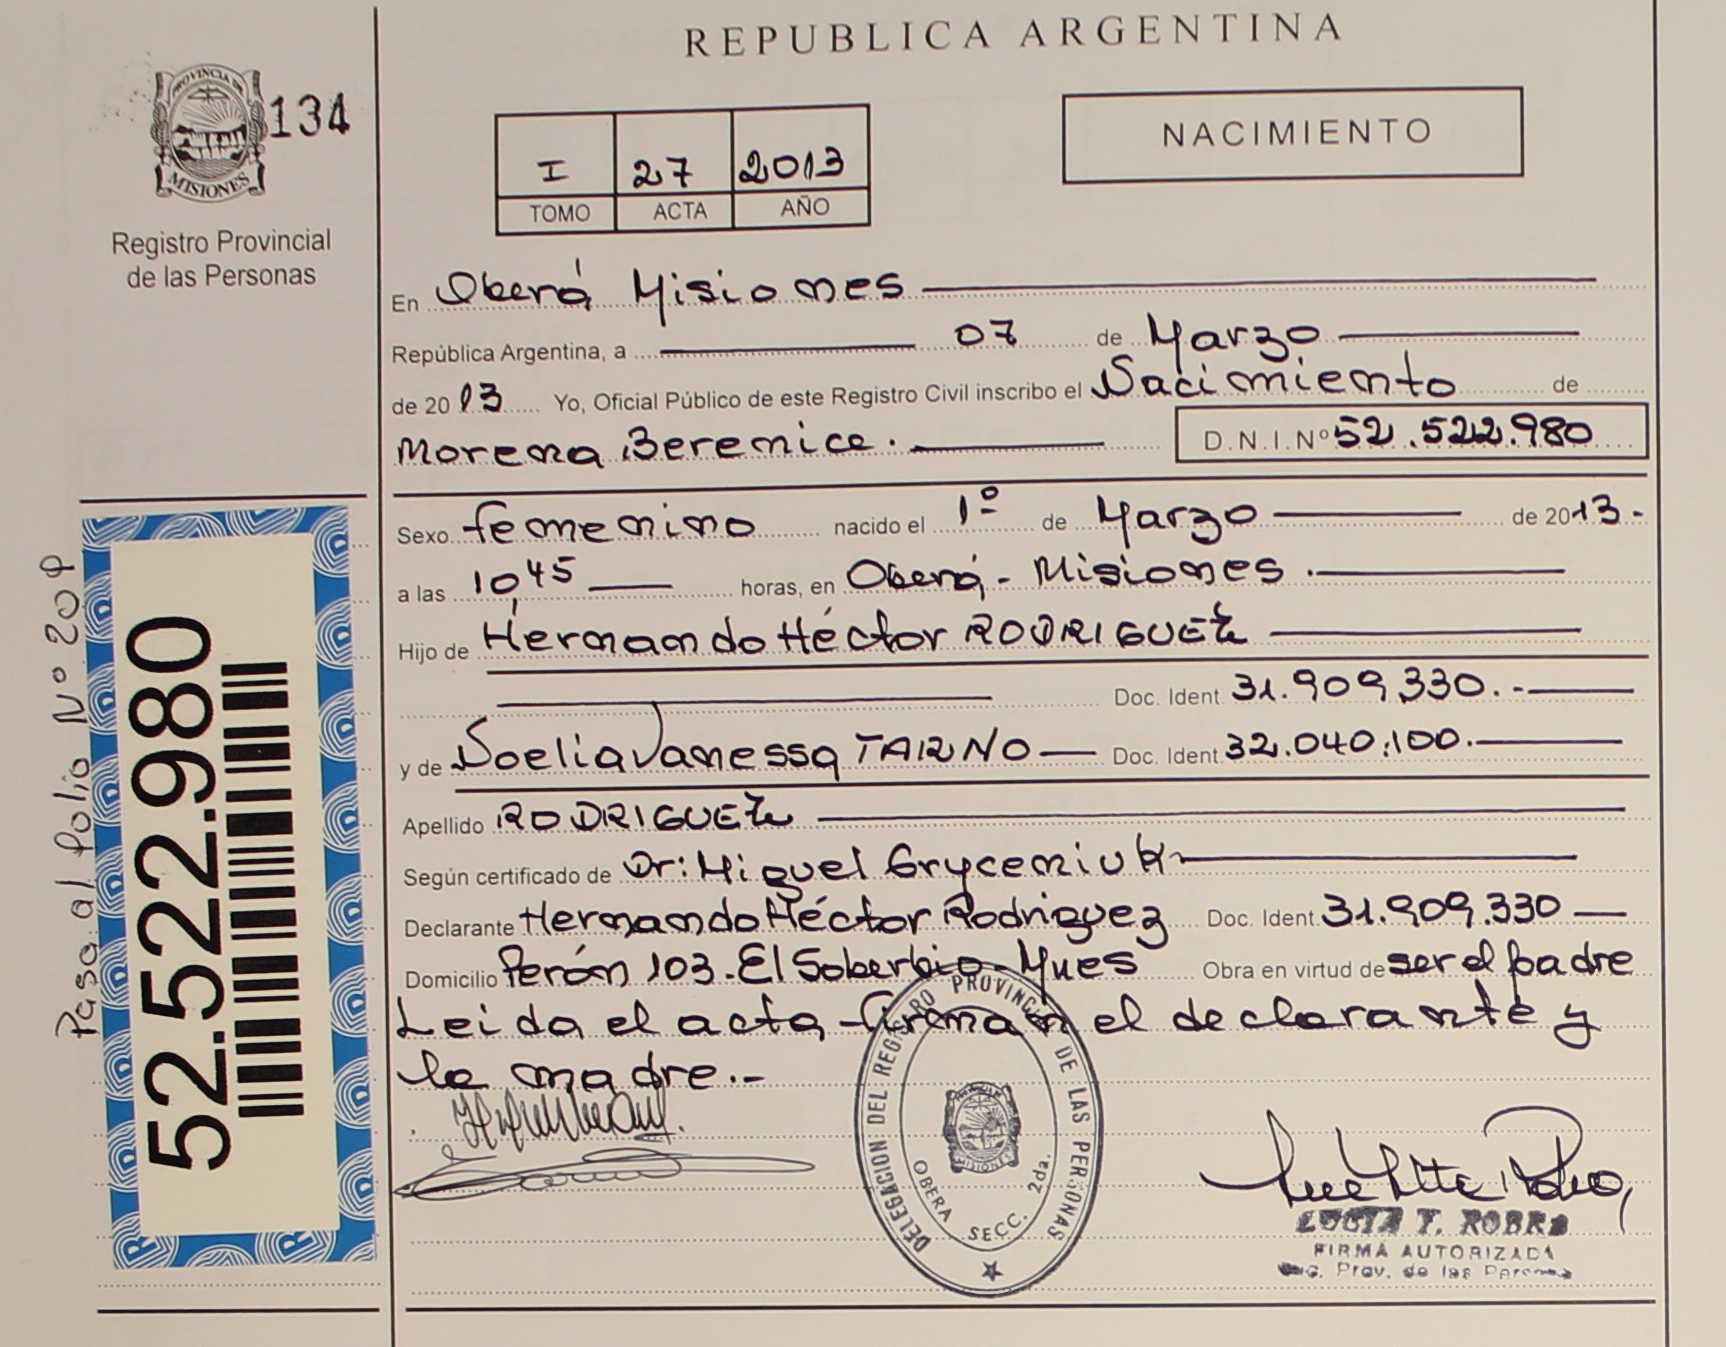 REPUBLICA ARGENTINA
PROVINCIA DE
MISIONES
134
Registro Provincial
de las Personas
I 27 2013
TOMO ACTA AÑO
NACIMIENTO
En Oberá Misiones
República Argentina, a 07 de Marzo
de 2013 Yo, Oficial Público de este Registro Civil inscribo el Nacimiento de
Morena Berenice. D.N.I. Nº 52.522.980
Sexo femenino nacido el 1º de Marzo de 2013.-
a las 10,45 horas, en Oberá - Misiones.
Hijo de Hernando Héctor RODRIGUEZ
Doc. Ident. 31.909.330.-
y de Noelia Vanessa TARNO Doc. Ident. 32.040.100.
Apellido RODRIGUEZ
Según certificado de Dr: Miguel Gryceniuk
Declarante Hernando Héctor Rodriguez Doc. Ident. 31.909.330
Domicilio Perón 103. El Soberbio - Mnes Obra en virtud de ser el padre
Leida el acta, firman el declarante y
la madre.-
DELEGACION DEL REGISTRO PROVINCIAL DE LAS PERSONAS
OBERA SECC. 2da.
MISIONES
FIRMA AUTORIZADA
Prov. de las Personas
52.522.980
Pasa al folio Nº 209